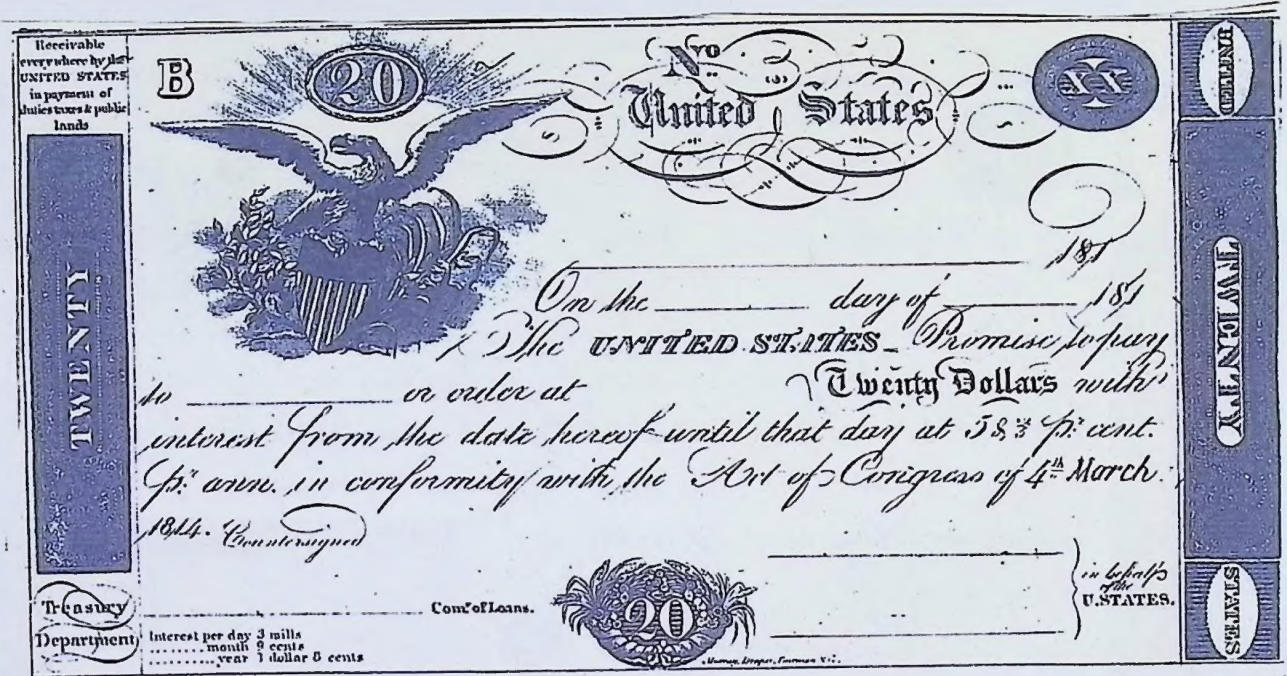 Receivable
everywhere by the
UNITED STATES
in payment of
duties taxes & public
lands
B
20
Nro.
XX
United States
181
On the day of 181
The UNITED STATES Promise to pay
to or order at Twenty Dollars with
interest from the date hereof until that day at 5 & ⅖ pr. cent.
pr. ann. in conformity with the Act of Congress of 4th March
1814. Countersigned
Comr. of Loans.
in behalf
of the
U.STATES.
TWENTY
Treasury
Department
Interest per day 3 mills
month 9 cents
year 1 dollar 8 cents
20
Murray, Draper, Fairman & Co.
UNITED
TWENTY
STATES